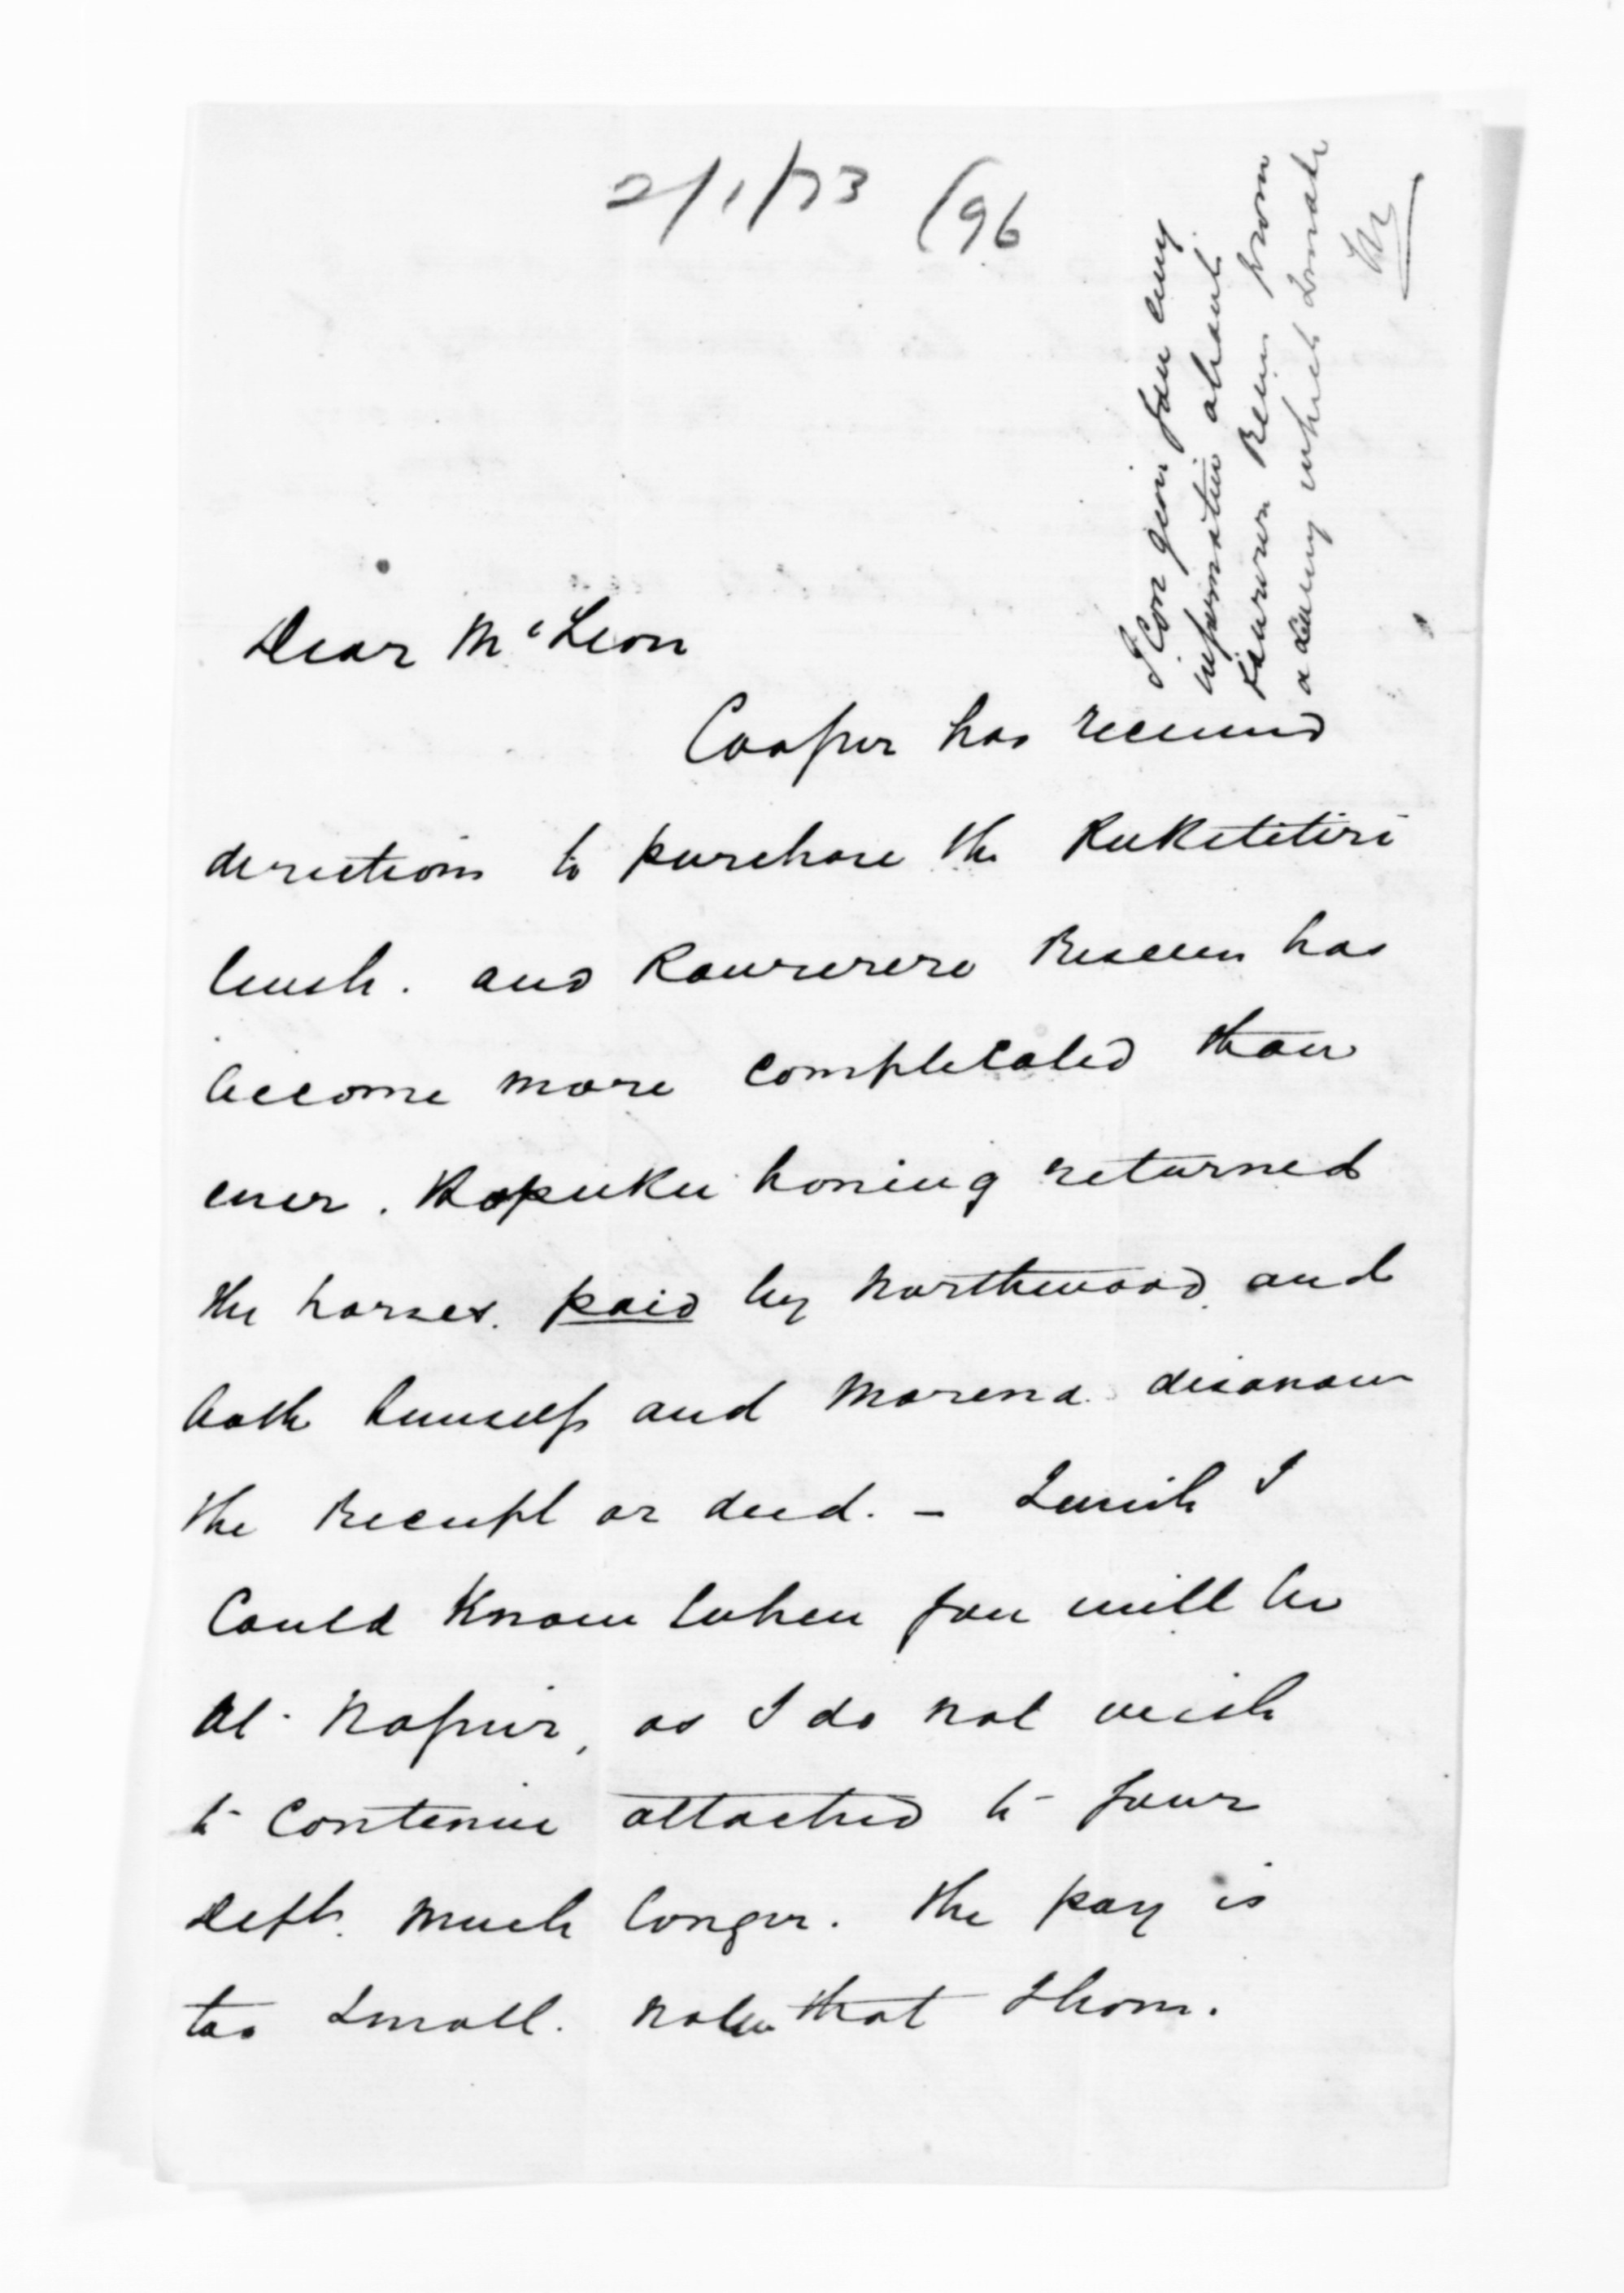 2/1/73 (96
I can give you any
information about
Kaururu from
a way which
Dear McLean
Cooper has received
directions to purchase the Puketitiri
bush. and Kaurerere Reserve has
become more complicated than
ever. Kopuku having returned
the horses. paid by Northwood and
both himself and Morena disavow
the Receipt or deed. - I wish I
could know when you will be
at Napier, as I do not wish
to continue attached to your
Dept. much longer. The pay is
too small. that Thom.